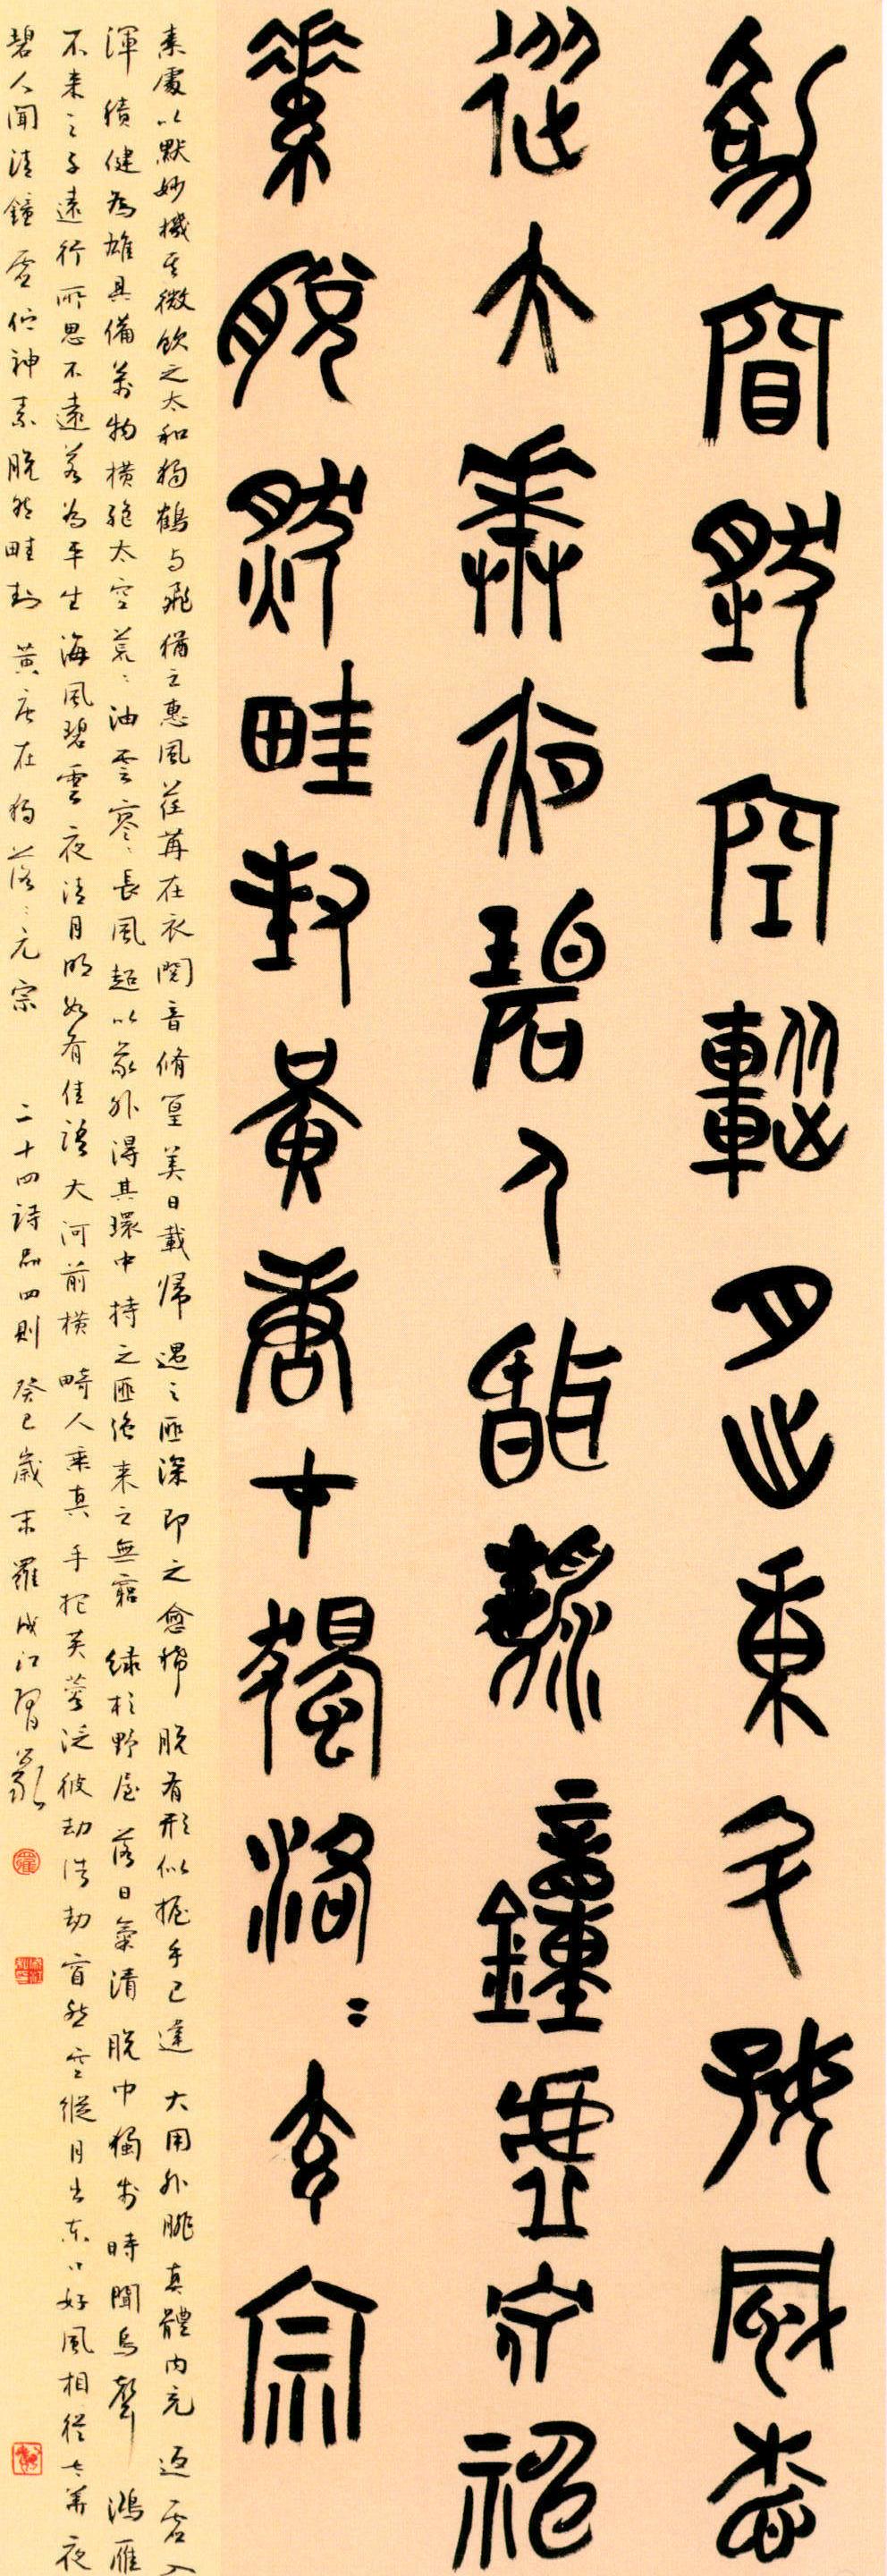 劫窅然空蹤月出東斗好風相
從太華夜碧人聞清鐘虛佇神
素脫然畦封黃唐在獨落〻玄宗
素處以默妙機其微飲之太和獨鶴与飛猶之惠風荏苒在衣閱音脩篁美日載歸遇之匪深即之愈稀脫有形似握手已違大用外腓真體內充返虛入
渾積健為雄具備萬物橫絕太空荒〻油雲寥〻長風超以象外得其環中持之匪強來之無窮綠杉野屋落日氣清脫巾獨步時聞鳥聲鴻雁
不來之子遠行所思不遠若為平生海風碧雲夜渚月明如有佳語大河前橫畸人乘真手把芙蓉泛彼劫浩劫窅然空縱月出東斗好風相從太華夜
碧人聞清鐘虛伫神素脫然畦封黃唐在獨落〻元宗二十四詩品四則癸巳歲末羅成江習篆